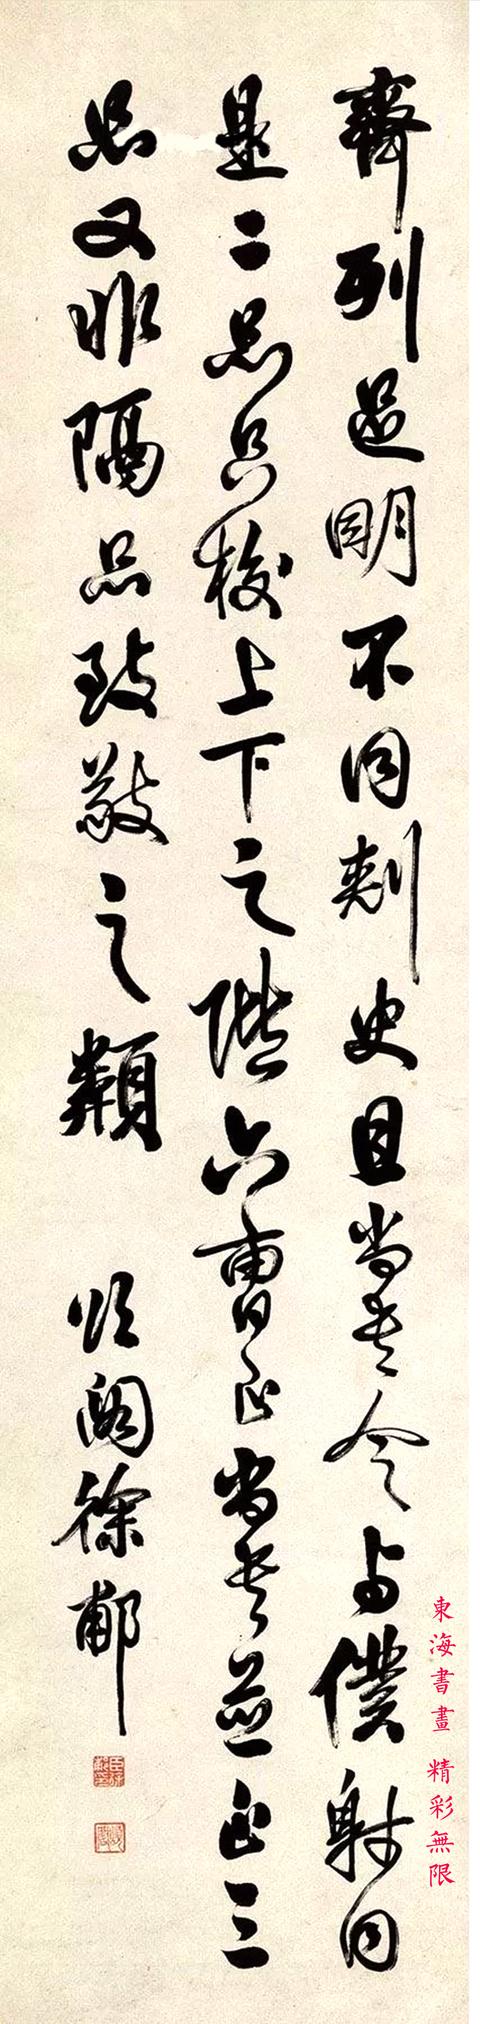 齊列足明不同刺史且尚書令与僕射同
是二品只校上下之階六曹正尚書並正三
品又非隔品致敬之類 頌閣徐郙
東海書畫 精彩無限